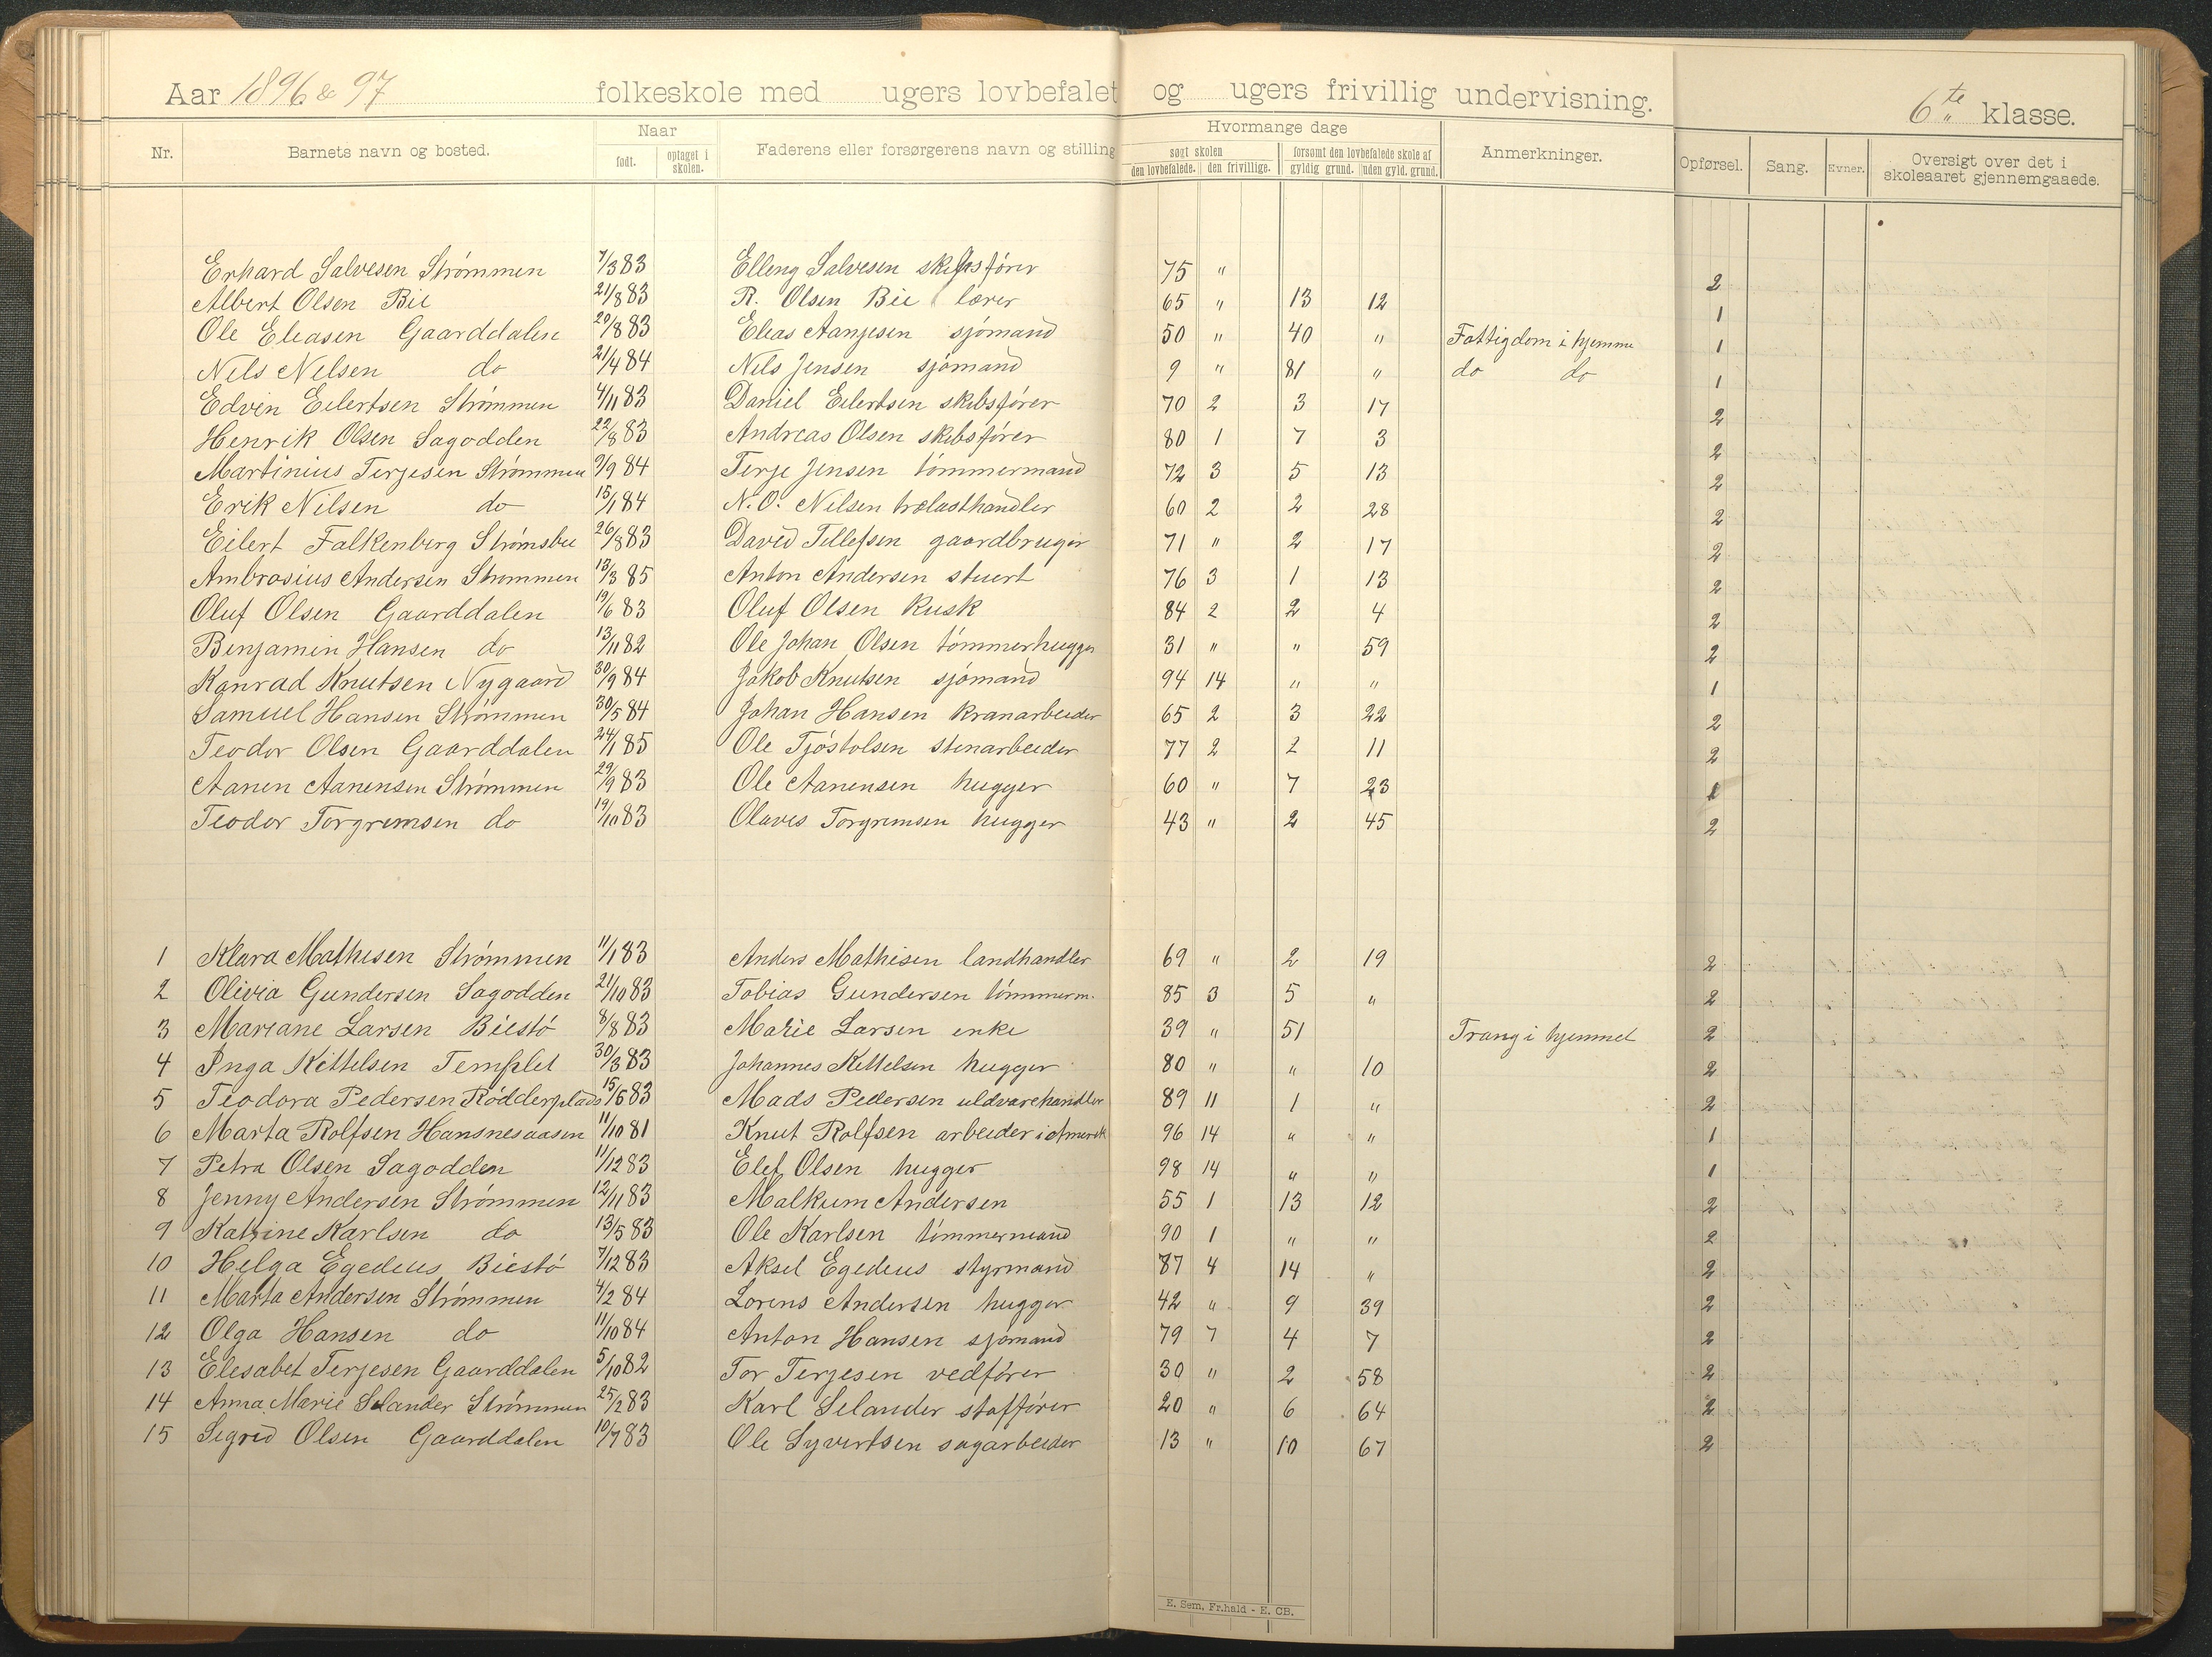 Aar 1896 & 97 folkeskole med ugers lovbefalet og ugers frivillig undervisning. 6te klasse.
Nr. Barnets navn og bosted. Naar født. optaget i skolen. Faderens eller forsørgerens navn og stilling Hvormange dage søgt skolen den lovbefalede. den frivillige. forsømt den lovbefalede skole af gyldig grund. uden gyld. grund. Anmerkninger. Opførsel. Sang. Evner. Oversigt over det i skoleaaret gjennemgaaede.
Erhard Salvesen Strömmen 7/3 83 Elleng Salvesen skibsförer 75 " 2
Albert Olsen Bie 21/8 83 R. Olsen Bie lærer 65 " 13 12 1
Ole Eleasen Gaarddalen 20/8 83 Eleas Aanjesen sjömand 50 " 40 " Fattigdom i hjemme 1
Nils Nelsen do 21/4 84 Nils Jensen sjömand 9 " 81 " do do 1
Edvin Eilertsen Strömmen 4/11 83 Daniel Eilertsen skibsförer 70 2 3 17 2
Henrik Olsen Sagodden 22/8 83 Andreas Olsen skibsförer 80 1 7 3 2
Martinius Terjesen Strömmen 9/9 84 Terje Jensen tömmermand 72 3 5 13 2
Erik Nilsen do 15/1 84 N. O. Nilsen trælasthandler 60 2 2 28 2
Eilert Falkenberg Strömsbu 26/8 83 David Tellefsen gaardbruger 71 " 2 17 2
Ambrosius Andersen Strommen 13/3 85 Anton Andersen stuert 76 3 1 13 2
Oluf Olsen Gaarddalen 19/6 83 Oluf Olsen Kusk 84 2 2 4 2
Benjamin Hansen do 13/11 82 Ole Johan Olsen tömmerhugger 31 " " 59 2
Konrad Knutsen Nygaard 30/9 84 Jakob Knutsen sjömand 94 14 " " 1
Samuel Hansen Strömmen 30/5 84 Johan Hansen Kranarbeider 65 2 3 22 2
Teodor Olsen Gaarddalen 24/1 85 Ole Tjöstolsen stenarbeider 77 2 2 11 2
Aanen Aanensen Strömmen 29/9 83 Ole Aanensen hugger 60 " 7 23
Teodor Torgremsen do 19/10 83 Olaves Torgremsen hugger 43 " 2 45 2
1 Klara Mathesen Strömmen 11/1 83 Anders Mathisen landhandler 69 " 2 19 2
2 Olivia Gundersen Sagodden 21/10 83 Tobias Gundersen tömmerm. 85 3 5 " 2
3 Mariane Larsen Biestö 8/8 83 Marie Larsen enke 39 " 51 Trang i hjemmet 2
4 Inga Kittelsen Templet 30/3 83 Johannes Kettelsen hugger 80 " " 10 2
5 Teodora Pedersen Rödderplads 15/5 83 Mads Pedersen uldvarehandler 89 11 1 " 2
6 Marta Rolfsen Hansnesaasen 11/10 81 Knut Rolfsen arbeider i Amerik 96 14 " " 1
7 Petra Olsen Sagodden 11/12 83 Elef Olsen hugger 98 14 " " 1
8 Jenny Andersen Strömmen 12/11 83 Malkum Andersen 55 1 13 12 2
9 Katrine Karlsen do 13/5 83 Ole Karlsen tömmermand 90 1 " " 2
10 Helga Egedeus Biestö 7/12 83 Aksel Egedeus styrmand 87 4 14 " 2
11 Marta Andersen Strömmen 4/2 84 Lorens Andersen hugger 42 " 9 39 2
12 Olga Hansen do 11/10 84 Anton Hansen sjömand 79 7 4 7 2
13 Elesabet Terjesen Gaarddalen 5/10 82 Tor Terjesen vedförer 30 " 2 58 2
14 Anna Marie Selander Strömmen 25/2 83 Karl Selander stafförer 20 " 6 64 2
15 Segred Olsen Gaarddalen 10/7 83 Ole Syvertsen sagarbeider 13 " 10 67 2
E. Sem. Fr.hald - E. CB.